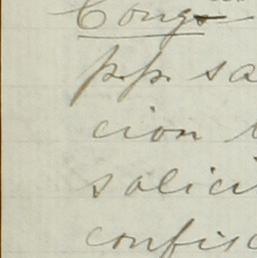 Congo
pp. sa
cion
solici
confis